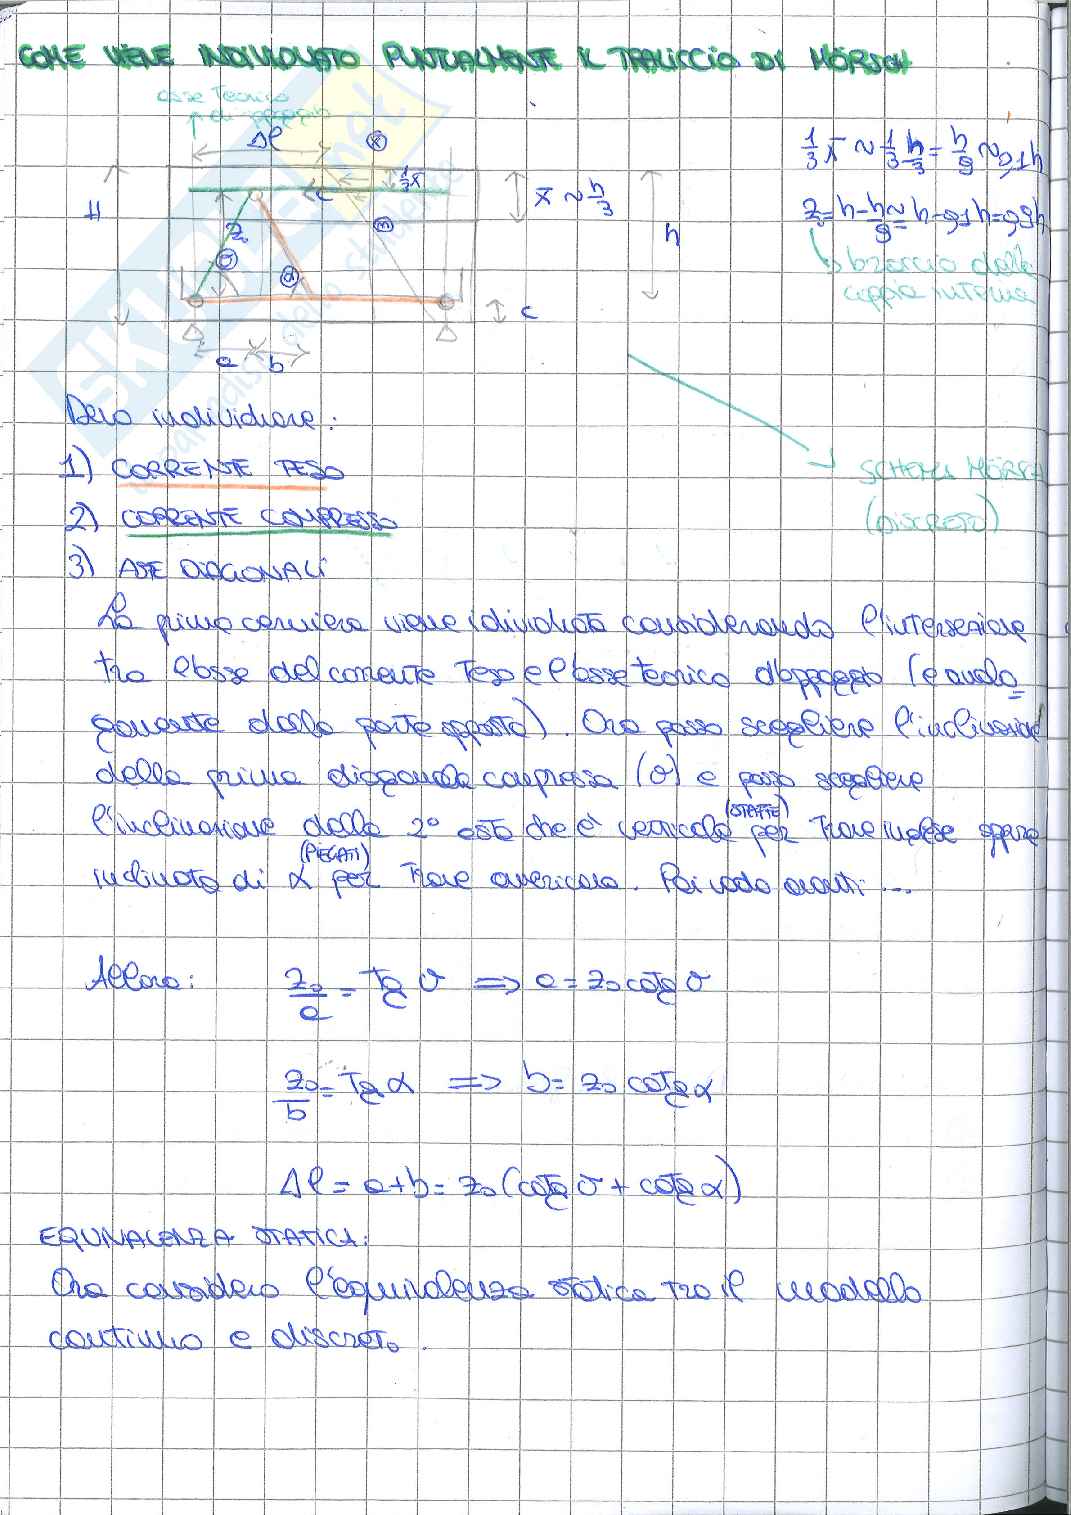 COME VIENE INDIVIDUATO PUNTUALMENTE IL TRALICCIO DI MÖRSCH
asse Teorico
di appoggio
Δl
H
z₀
c
⅓x̄
x̄ ~ h/3
h
c
θ
α
a
b
1/3 x̄ ~ 1/3 h/3 = h/9 ~ 0,1h
z₀ = h - h/9 ≈ h - 0,1h = 0,9h
braccio della
coppia interna
SKUOLA.net
Devo individuare:
1) CORRENTE TESO
2) CORRENTE COMPRESSO
3) ASTE DIAGONALI
SCHEMA MÖRSCH
(DISCRETO)
La prima cerniera viene idividuata considerando l'intersezione
tra l'asse del corrente teso e l'asse teorico d'appoggio (e analo=
gamente dalla parte opposta). Ora posso scegliere l'inclinazione
della prima diagonale compressa (θ) e posso scegliere
l'inclinazione della 2° asta che è verticale (STAFFE) per Trave inglese oppure
inclinata di α (PIEGATI) per Trave americana. Poi vado avanti ...
Allora: z₀/a = tg θ ⇒ a = z₀ cotg θ
z₀/b = tg α ⇒ b = z₀ cotg α
Δl = a+b = z₀ (cotg θ + cotg α)
EQUIVALENZA STATICA:
Ora considero l'equivalenza statica tra il modello
continuo e discreto.